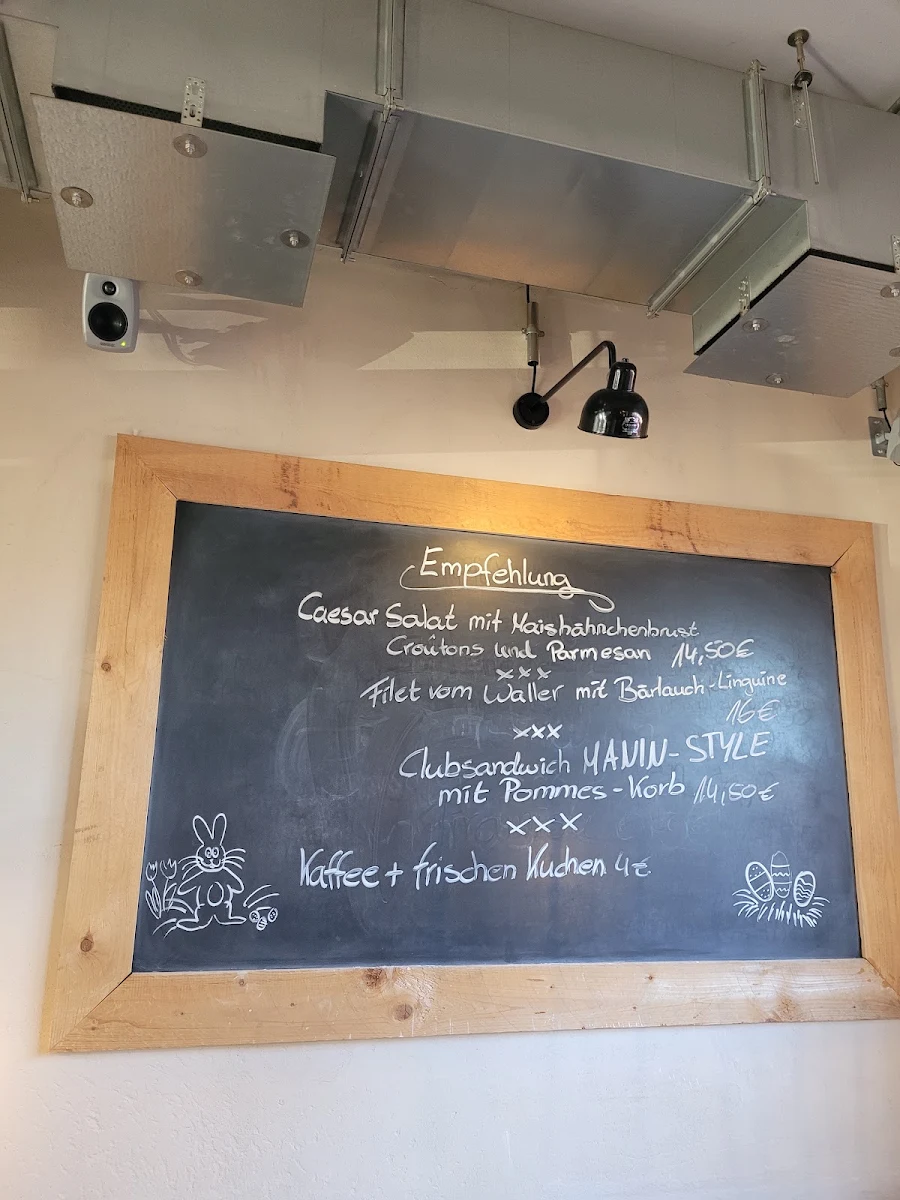 Empfehlung
Caesar Salat mit Maishähnchenbrust
Croûtons und Parmesan 14,50€
xxx
Filet vom Waller mit Bärlauch-Linguine
16€
xxx
Clubsandwich MANIN-STYLE
mit Pommes-Korb 14,50€
xxx
Kaffee + frischen Kuchen 4€